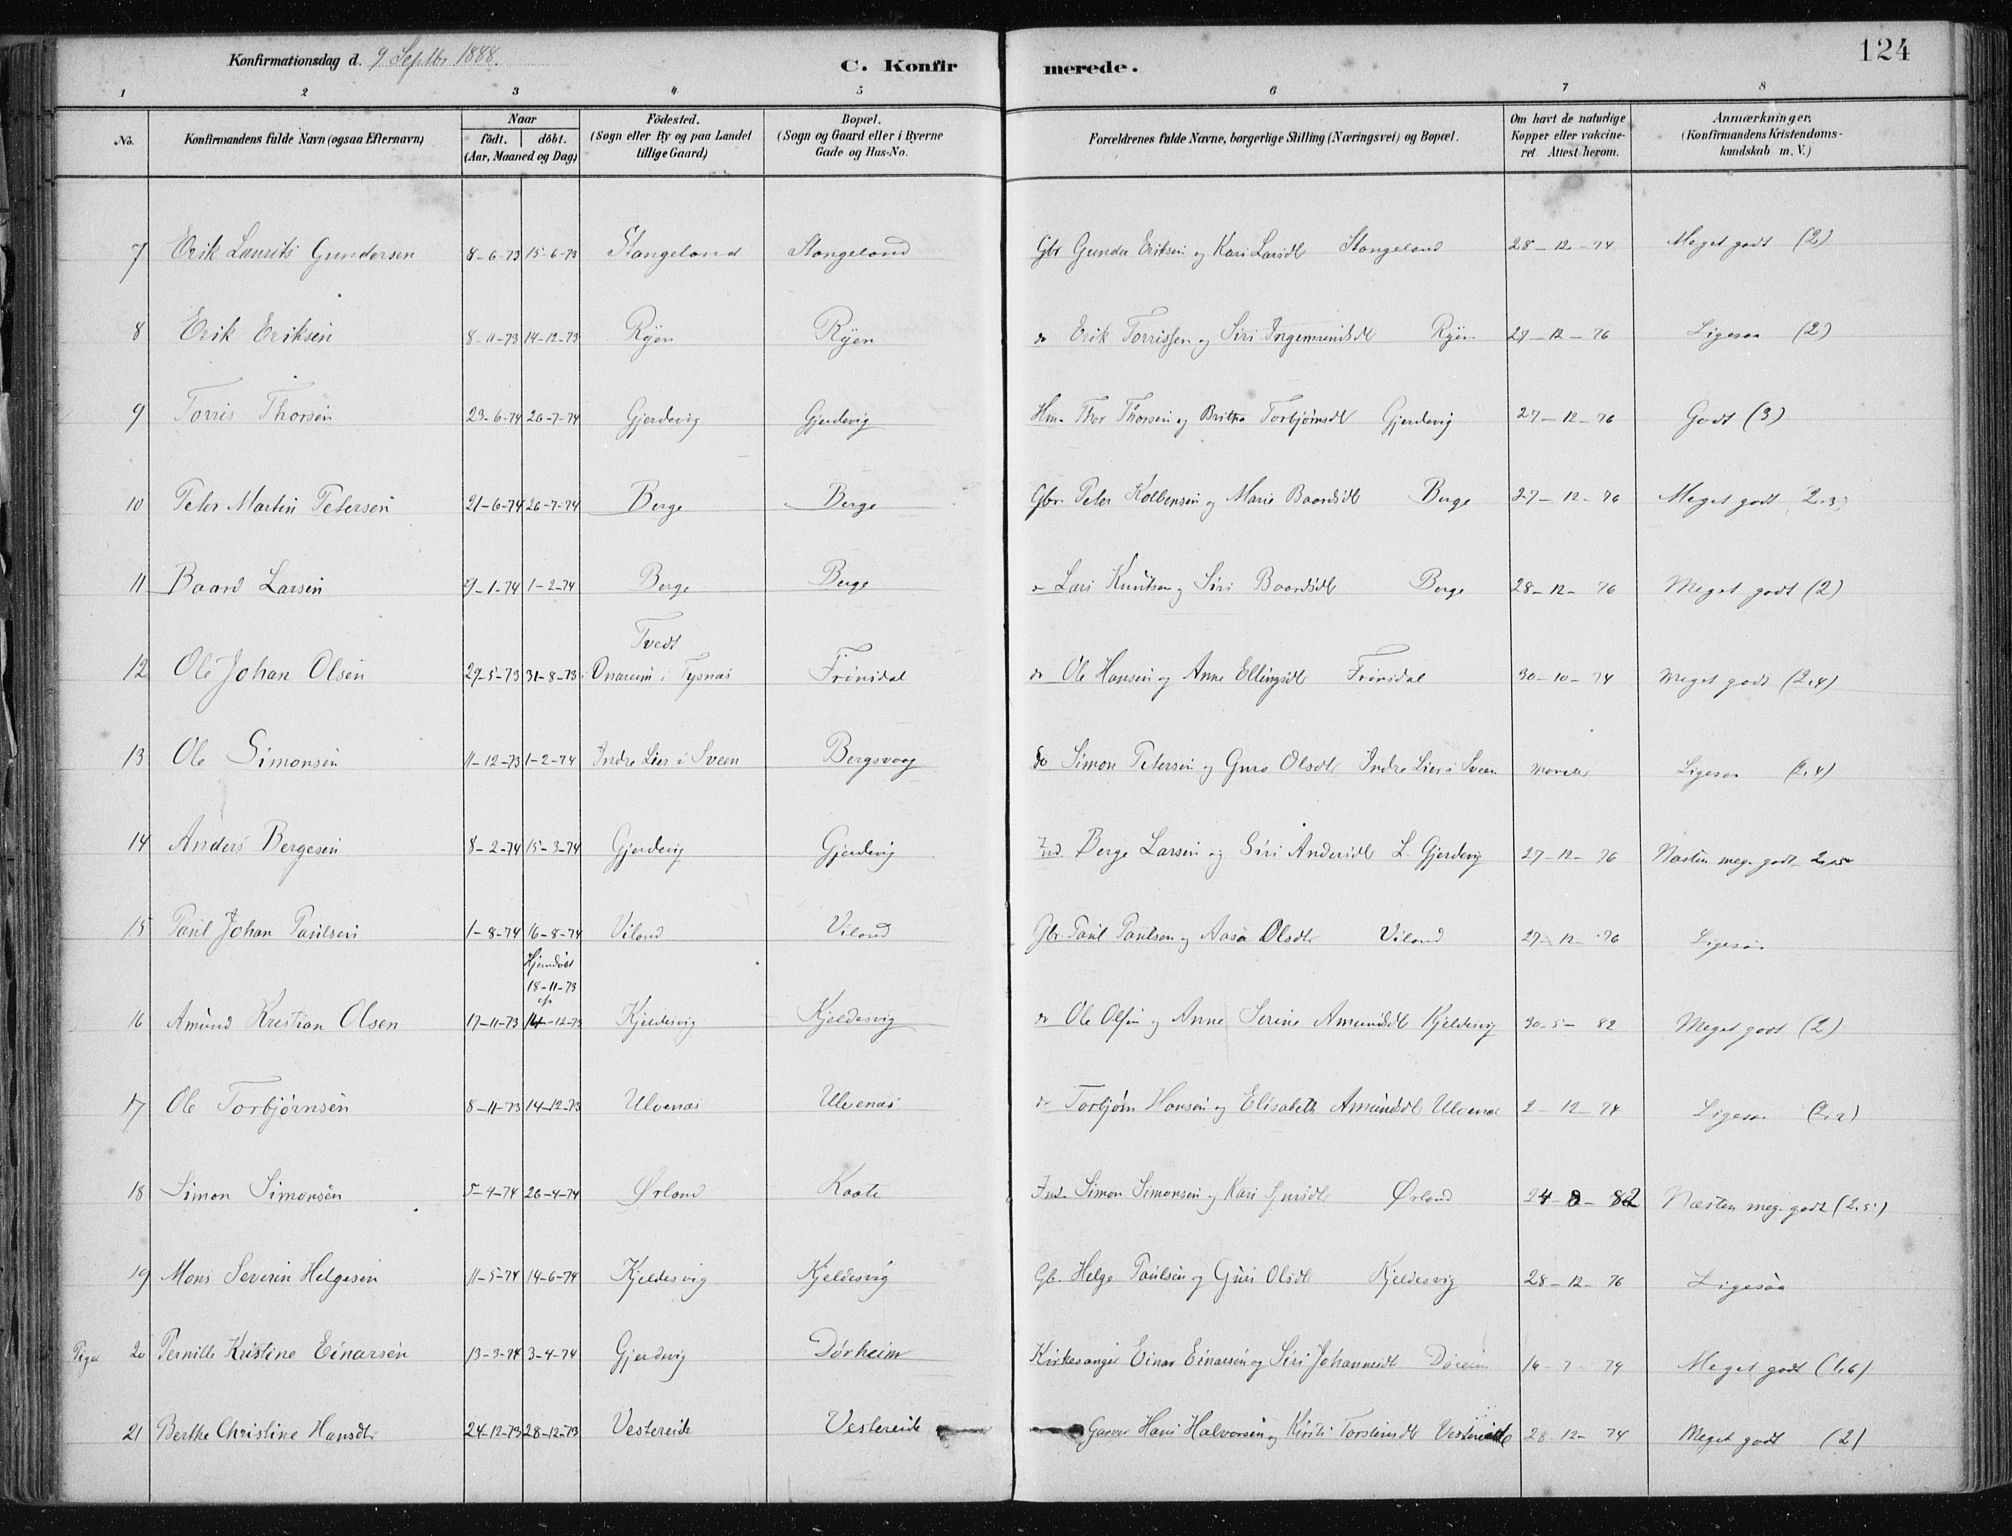 Konfirmationsdag d. 9 Septbr 1888.
C. Konfir merede.
124
1 2 3 4 5 6 7 8
No.
Konfirmandens fulde Navn (ogsaa Efternavn)
Naar
født. døbt.
(Aar, Maaned og Dag)
Fødested.
(Sogn eller By og paa Landet
tillige Gaard)
Bopæl.
(Sogn og Gaard eller i Byerne
Gade og Hus-No.
Forældrenes fulde Navne, borgerlige Stilling (Næringsvei) og Bopæl.
Om havt de naturlige
Kopper eller vakcine-
ret Attest herom.
Anmærkninger.
(Konfirmandens Kristendoms-
kundskab m. V.)
7 Erik Laurits Gundersen 8-6-73 15-6-73 Stangeland Stangeland Gbr Gunder Eriksen og Kari Larsdtr Stangeland 28-12-74 Meget godt (2)
8 Erik Eriksen 8-11-73 14-12-73 Ryen Ryen do Erik Torrissen og Siri Ingemundsdtr Ryen 27-12-76 Ligesaa (2)
9 Torris Thorsen 23-6-74 26-7-74 Gjerdevig Gjerdevig Hm. Thor Thorsen og Britha Torbjørnsdtr Gjerdevig 27-12-76 Godt (3)
10 Peter Martin Petersen 21-6-74 26-7-74 Berge Berge Gbr. Peter Kolbensen og Marie Baardsdtr Berge 27-12-76 Meget godt 2.3)
11 Baard Larsen 9-1-74 1-2-74 Berge Berge do Lars Knutsen og Siri Baardsdtr Berge 28-12-76 Meget godt (2)
Tvedt
12 Ole Johan Olsen 29-5-73 31-8-73 Onareim i Tysnæs Frønsdal do Ole Hansen og Anne Ellingsdtr Frønsdal 30-10-74 Meget godt (2.4)
13 Ole Simonsen 11-12-73 1-2-74 Indre Lier i Sveen Bergsvaag do Simon Petersen og Guro Olsdtr Indre Lier i Sveen Ligesaa (2.4)
14 Anders Bergesen 8-2-74 15-3-74 Gjerdevig Gjerdevig Ind. Berge Larsen og Siri Andersdtr L. Gjerdevig 27-12-76 Næsten meg. godt 2.5
15 Paul Johan Paulsen 1-8-74 16-8-74 Viland Viland Gbr. Paul Paulsen og Aasa Olsdtr Viland 27-12-76 Ligesaa
Hjemdøbt
18-11-73
16 Amund Kristian Olsen 17-11-73 14-12-73 Kjeldesvig Kjeldesvig do Ole Olsen og Anne Serine Amundsdtr Kjeldesvig 30-5-82 Meget godt (2)
17 Ole Torbjørnsen 8-11-73 14-12-73 Ulvenæs Ulvenæs do Torbjørn Hansen og Elisabeth Amundsdtr Ulvenæs 2-12-74 Ligesaa (2.2)
18 Simon Simonsen 5-4-74 26-4-74 Ørland Kaate Ind. Simon Simonsen og Kari Ørland 24-8-82 Næsten meg. godt (2.5)
19 Mons Severin Helgesen 11-5-74 14-6-74 Kjeldesvig Kjeldesvig Gb. Helge Paulsen og Guri Olsdtr Kjeldesvig 28-12-76 Ligesaa
Piger 20 Pernille Kristine Einarsen 13-3-74 3-4-74 Gjerdevig Dørheim Kirkesanger Einar Einarsen og Siri Johannesdtr 16-7-74 Meget godt (1.6)
21 Berthe Christine Hansdtr 24-12-73 28-12-73 Vestereide Vestereide Garver Hans Halvorsen og Kirsti Torsteinsdtr Vestereide 28-12-74 Meget godt (2)